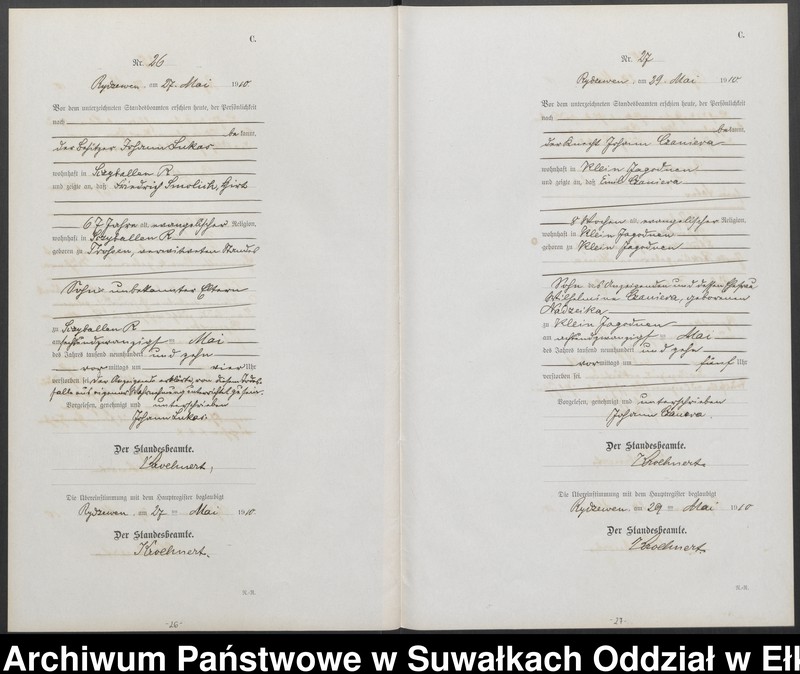 C.
Nr. 26
Rydzewen, am 27. Mai 1910.
Vor dem unterzeichneten Standesbeamten erschien heute, der Persönlichkeit
nach
bekannt,
der Besitzer Johann Lukas
wohnhaft in Szyballen R.
und zeigte an, daß Friedrich Smolich, Hirt
67 Jahre alt, evangelischer Religion,
wohnhaft in Szyballen R
geboren zu, verwitweten Standes
Sohn unbekannter Eltern
zu Szyballen R
am sechsundzwanzigsten Mai
des Jahres tausend neunhundert und zehn
vormittags um vier Uhr
verstorben sei. Der Anzeigende erklärte, von diesem Todes-
falle aus eigener Wahrnehmung unterrichtet zu sein.
Vorgelesen, genehmigt und unterschrieben
Johann Lukas
Der Standesbeamte.
Kroehnert.
Die Übereinstimmung mit dem Hauptregister beglaubigt
Rydzewen, am 27 ten Mai 1910.
Der Standesbeamte.
Kroehnert.
-26-
C.
Nr. 27
Rydzewen, am 29. Mai 1910
Vor dem unterzeichneten Standesbeamten erschien heute, der Persönlichkeit
nach
bekannt,
der Knecht Johann Czaniera
wohnhaft in Klein Jagodnen
und zeigte an, daß Emil Czaniera
8 Wochen alt, evangelischer Religion,
wohnhaft in Klein Jagodnen
geboren zu Klein Jagodnen
Sohn des Anzeigenden und dessen Ehefrau
Wilhelmine Czaniera, geborenen
Nadzeika
zu Klein Jagodnen
am achtundzwanzigsten Mai
des Jahres tausend neunhundert und zehn
vormittags um fünf Uhr
verstorben sei
Vorgelesen, genehmigt und unterschrieben
Johann Czaniera.
Der Standesbeamte.
Kroehnert.
Die Übereinstimmung mit dem Hauptregister beglaubigt
Rydzewen, am 29 ten Mai 1910
Der Standesbeamte.
Kroehnert.
-27-
Archiwum Państwowe w Suwałkach Oddział w Ełk